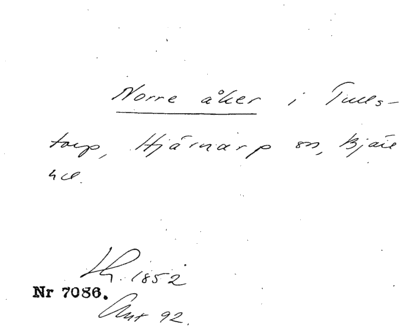 Norre åker i Tulls-
torp, Hjärnarp sn, Bjäre
hd.
Lh. 1852
Nr 7086.
Ant 92.